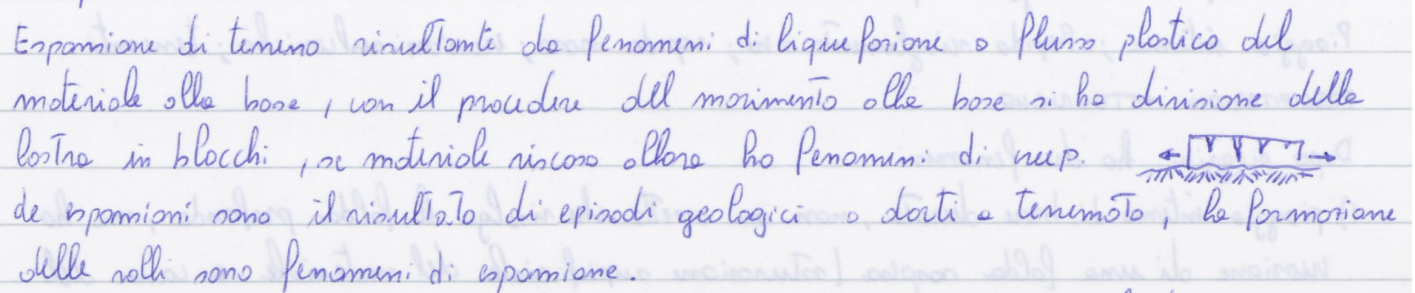 Espansione di terreno risultante da fenomeni di liquefazione o flusso plastico del
materiale alla base, con il procedere del movimento alla base si ha divisione della
lastra in blocchi, se materiale viscoso allora ho fenomeni di creep.
Le espansioni sono il risultato di episodi geologici o dovti a terremoto, la formazione
delle valli sono fenomeni di espansione.